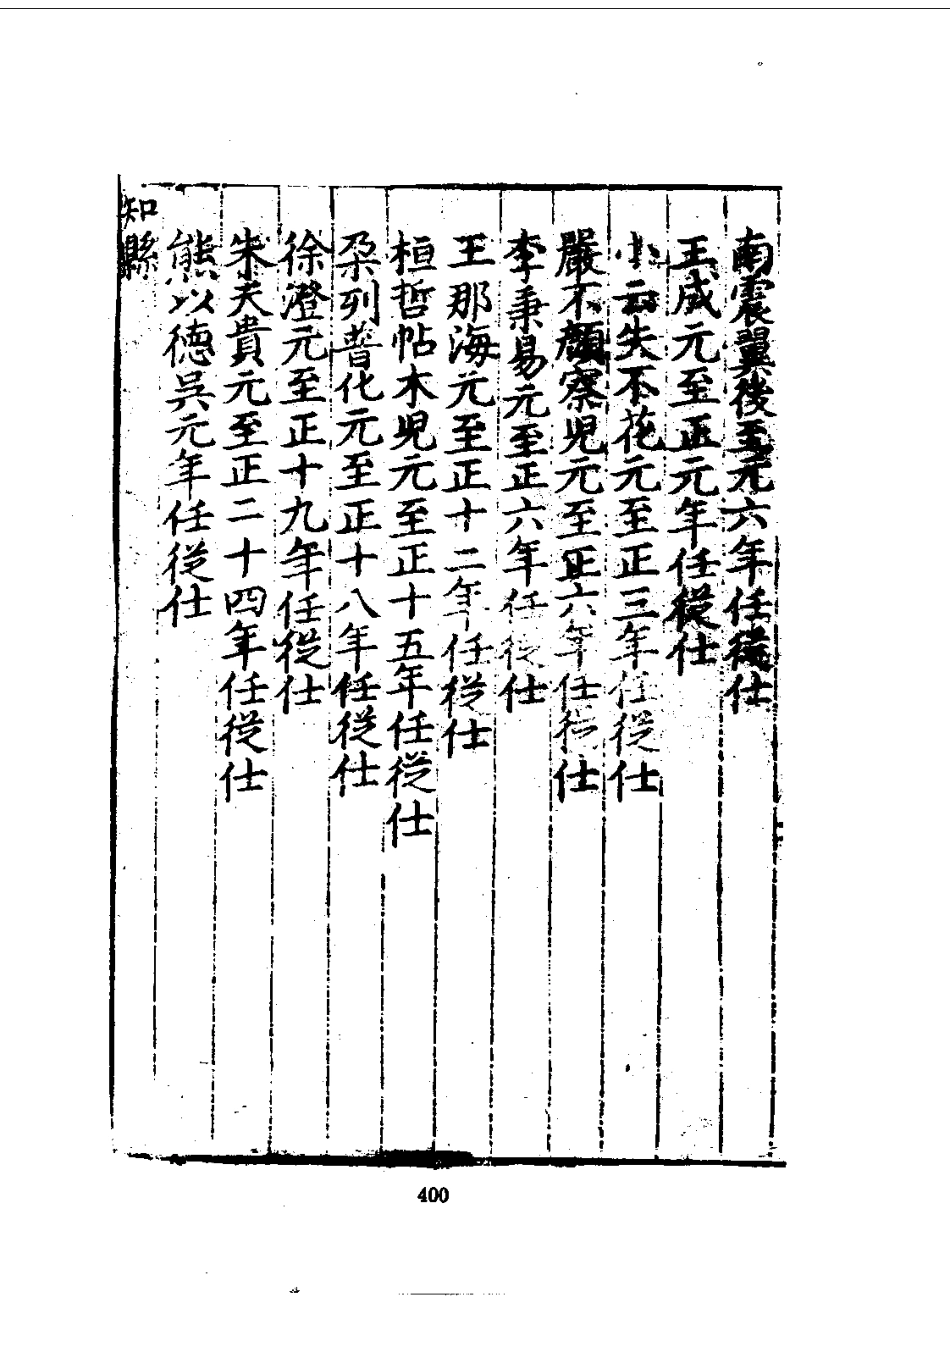 南震翼後至元六年任從仕
王成元至正元年任從仕
云失不花元至正三年任從仕
嚴不顏察児元至正六年任從仕
李秉易元至正六年任從仕
王那海元至正十二年任從仕
桓哲帖木児元至正十五年任從仕
朶列普化元至正十八年任從仕
徐澄元至正十九年任從仕
朱天貴元至正二十四年任從仕
熊以德吳元年任從仕
知縣
400